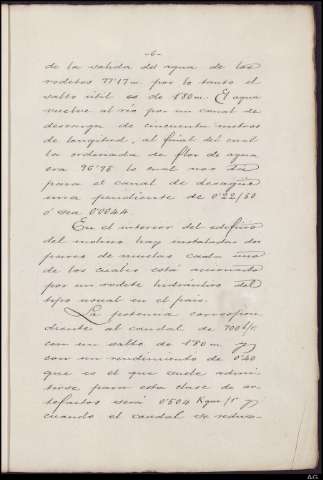 -6-
de la salida del agua de los
rodetes 77'17 m. por lo tanto el
salto útil es de 1'80 m. El agua
vuelve al río por un canal de
desagüe de cincuenta metros
de longitud, al final del cual
la ordenada de flor de agua
era 76'95 lo cual nos da
para el canal de desagüe
una pendiente de 0'22/50
ó sea 0'0044.
En el interior del edificio
del molino hay instalados dos
pares de muelas cada uno
de los cuales está accionado
por un rodete hidráulico del
tipo usual en el país.
La potencia correspon
diente al caudal de 700 l/s.
con un salto de 1'80 m. y
con un rendimiento de 0'40
que es el que suele admi
tirse para esta clase de ar
tefactos será 504 Kgm/s y
cuando el caudal se reduz-
AG